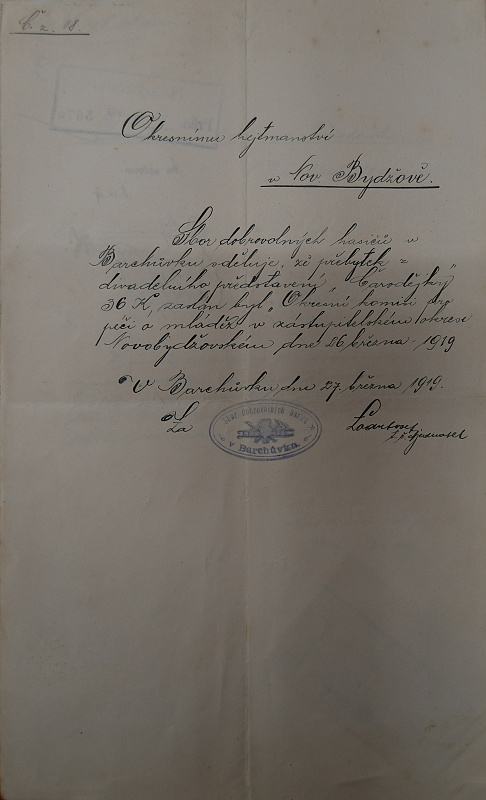 Č. z. 18.
Okresnímu hejtmanství
v Nov. Bydžově.
Sbor dobrovolných hasičů v
Barchůvku sděluje, že přebytek =
divadelního představení „Čarodějky"
36 K, zaslán byl „Okresní komisi pro
péči o mládež v zástupitelském okrese
Novobydžovském dne 26 března - 1919
V Barchůvku, dne 27. března 1919.
Za
Sbor dobrovolných hasičů
v Barchůvku.